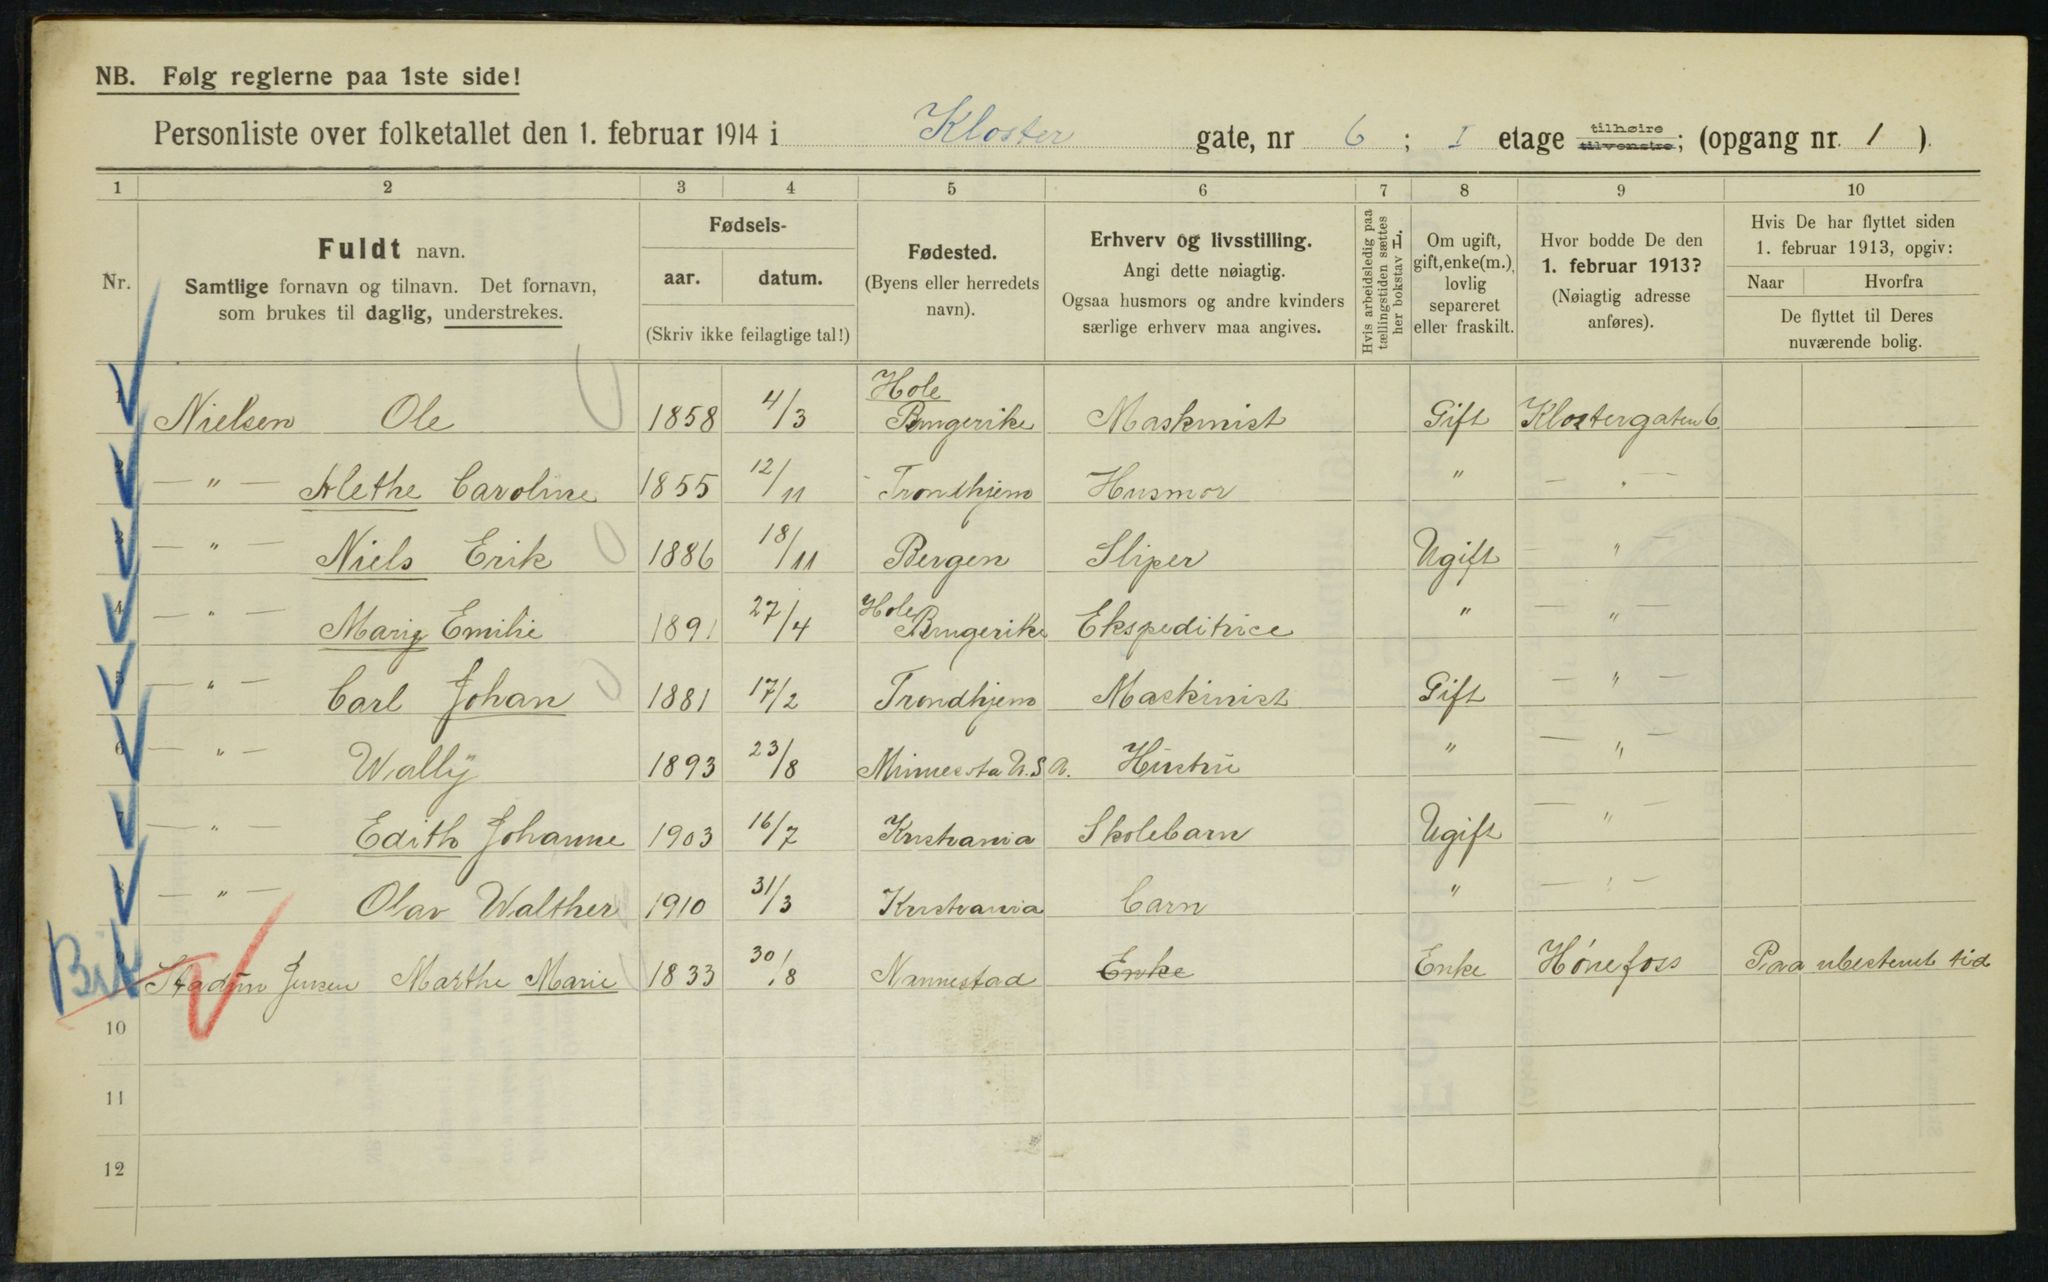 NB. Følg reglerne paa 1ste side!
Personliste over folketallet den 1. februar 1914 i Kloster gate, nr 6 ; I etage tilhøire tilvenstre; (opgang nr. 1 ).
1 2 3 4 5 6 7 8 9 10
Nr.
Fuldt navn.
Samtlige fornavn og tilnavn. Det fornavn,
som brukes til daglig, understrekes.
Fødsels-
aar. datum.
(Skriv ikke feilagtige tal!)
Fødested.
(Byens eller herredets
navn).
Erhverv og livsstilling.
Angi dette nøiagtig.
Ogsaa husmors og andre kvinders
særlige erhverv maa angives.
Hvis arbeidsledig paa
tællingstiden sættes
her bokstav L.
Om ugift,
gift, enke(m.),
lovlig
separeret
eller fraskilt.
Hvor bodde De den
1. februar 1913?
(Nøiagtig adresse
anføres).
Hvis De har flyttet siden
1. februar 1913, opgiv:
Naar Hvorfra
De flyttet til Deres
nuværende bolig.
1 Nielsen Ole 1858 4/3 Hole Ringerike Maskinist Gift Klostergaten 6.
2 — " — Alethe Caroline 1855 12/11 Trondhjem Husmor " — " —
3 — " — Niels Erik 1886 18/11 Bergen Sliper Ugift — " —
4 — " — Marie Emilie 1891 27/4 Hole Ringerike Ekspeditrice " — " —
5 — " — Carl Johan 1881 17/2 Trondhjem Maskinist Gift — " —
6 — " — Wally 1893 23/8 Minnesota U.S.A. Hustru " — " —
7 — " — Edith Johanne 1903 16/7 Kristiania Skolebarn Ugift — " —
8 — " — Olav Walther 1910 31/3 Kristiania barn " — " —
9 Jensen Marthe Marie 1833 30/8 Nannestad Enke Enke Hønefoss Paa ubestemt tid
10
11
12